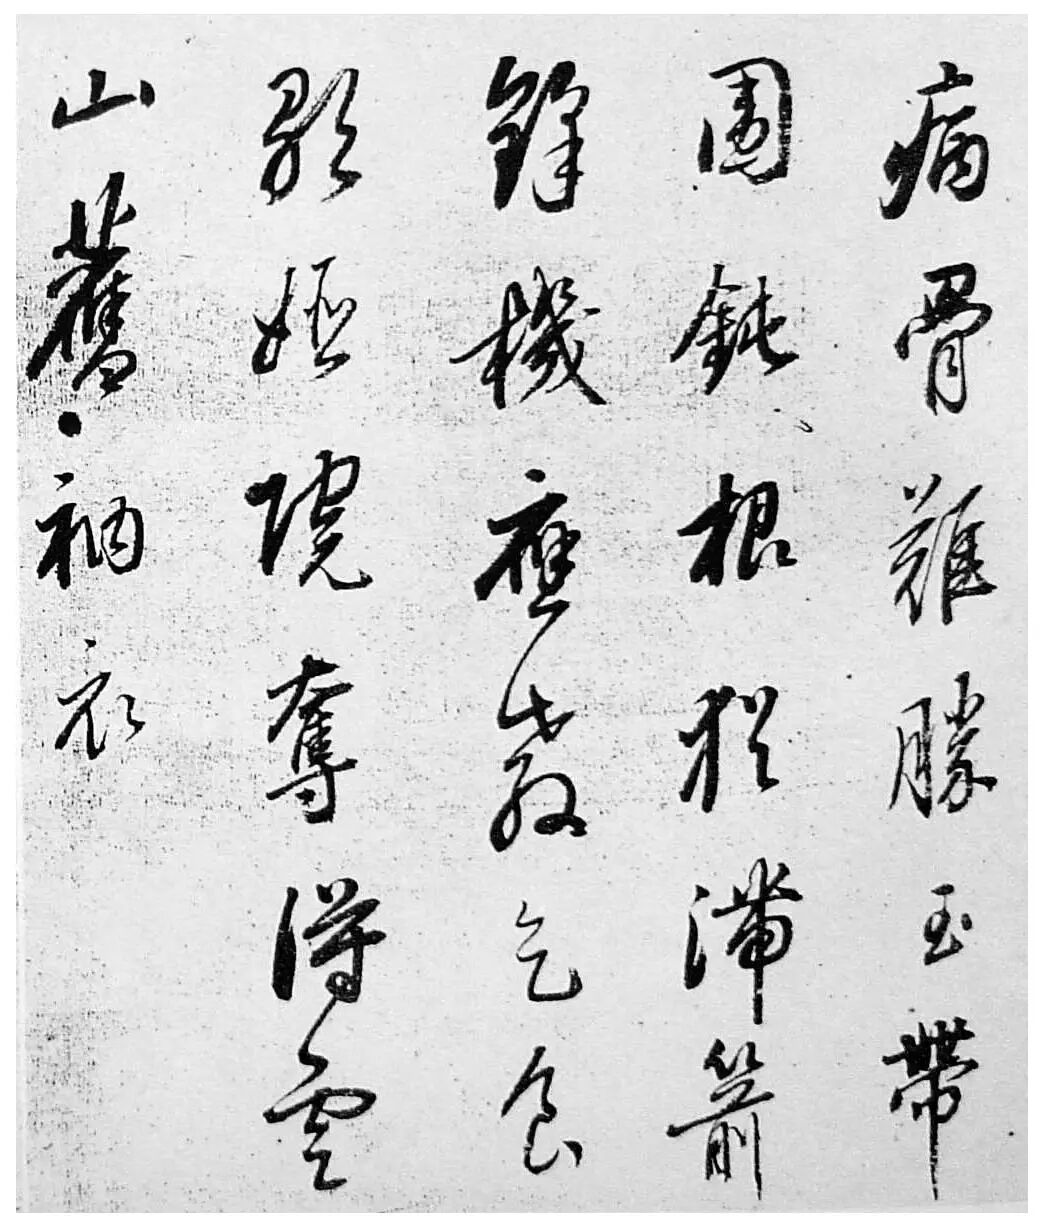 病骨難勝玉帶
圍鈍根猶滯箭
鋒機應教乞食
歌姬院奪得雲
山舊衲衣